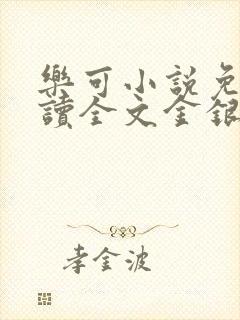 樂可小説免
讀全文金銀
李金波